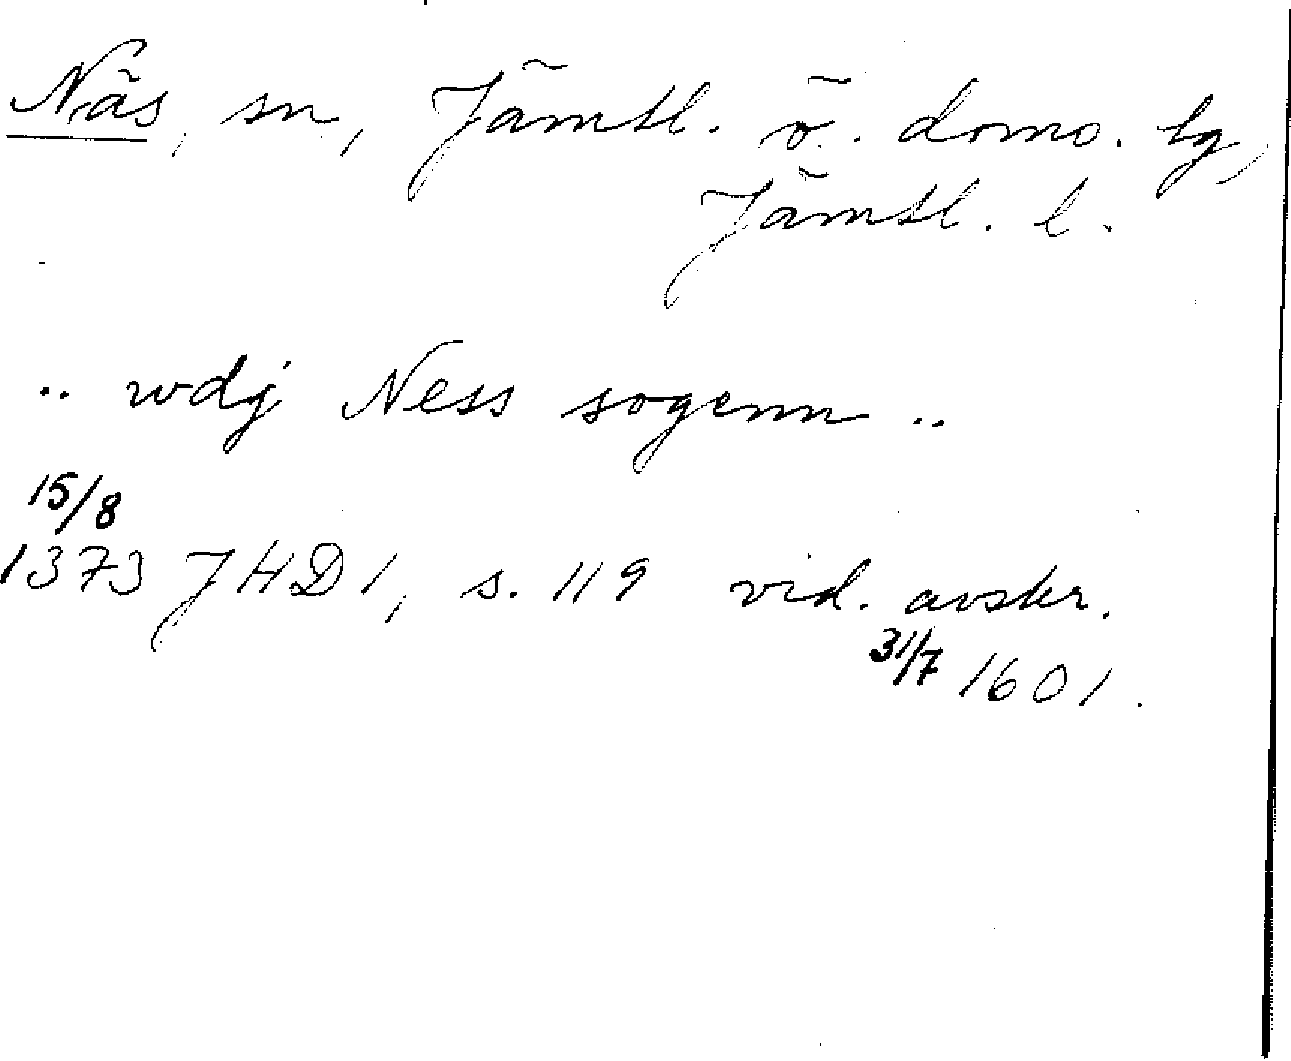 Näs, sn, Jämtl. ö. doms. tg,
Jämtl. l.
.. wdj Ness sogenn ..
15/8
1373 JHD 1, s. 119 vid. avskr.
31/7 1601.